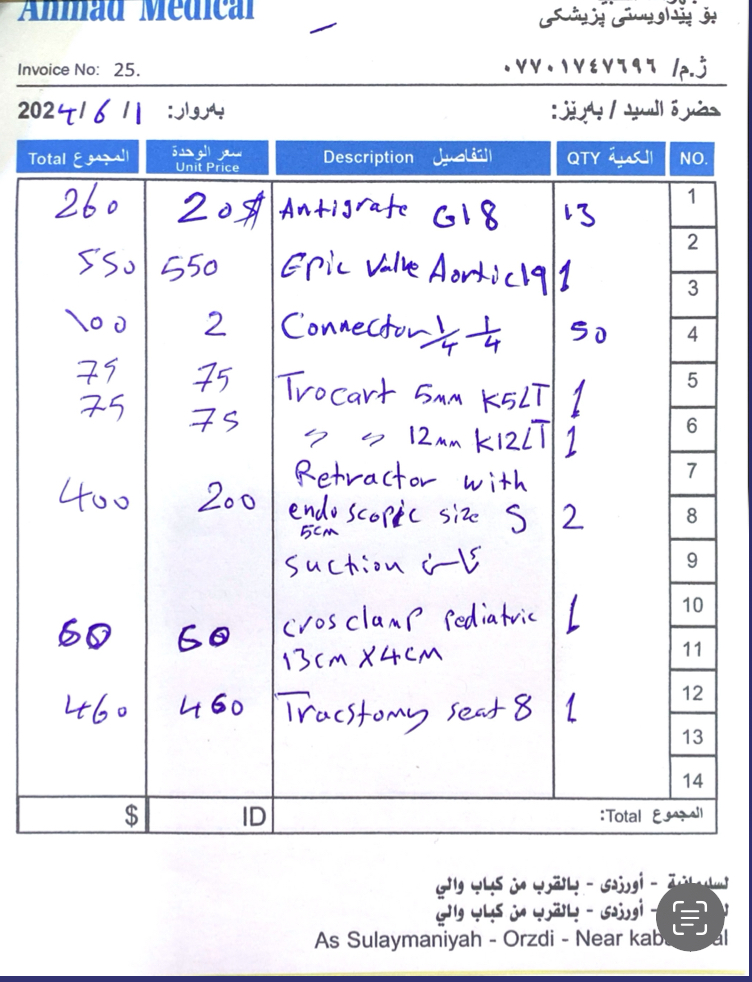 Ahmad Medical
بۆ پێداویستی پزیشکی
Invoice No: 25.
ژ.م/ ٠٧٧٠١٧٤٧٦٩٦
2024/6/1 بەروار:
حضرة السید / بەڕێز:
Total المجموع سعر الوحدة Unit Price Description التفاصیل QTY الكمية NO.
260 20$ Antigrate G18 13 1
2
550 550 Epic Valve Aortic 19 1 3
100 2 Connector 1/4 1/4 50 4
75 75 Trocart 5mm K5LT 1 5
75 75 " " 12mm K12LT 1 6
Retractor with 7
400 200 endoscopic size S 2 8
5cm
Suction 9
60 60 cros clamp pediatric 1 10
13cm X 4cm 11
460 460 Tracstomy seat 8 1 12
13
14
$ ID Total: المجموع
- أورزدی - بالقرب من كباب والي
- أورزدی - بالقرب من كباب والي
As Sulaymaniyah - Orzdi - Near